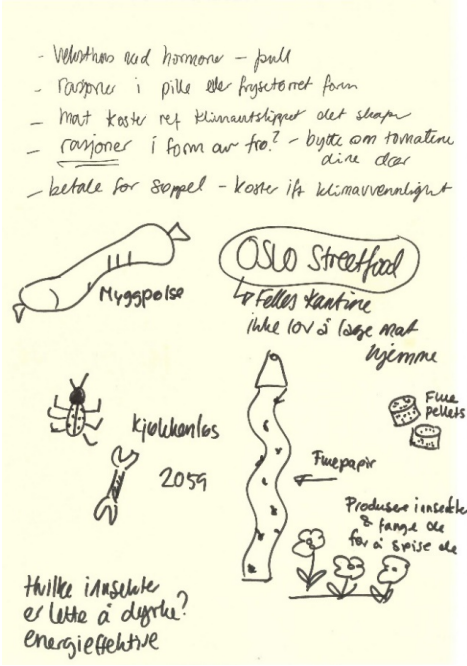 - veksthus med hormoner - pull
- rasjoner i pille eller frysetørret form
- mat koster ref klimautslippet det skaper
- rasjoner i form av frø? - bytte om tomatene
dine dør
- betale for søppel - koster ift klimavvennlight
Myggpølse
OSLO Streetfood
↳ Felles kantine
ikke lov å lage mat
hjemme
Kjøkkenløs
2059
Flue
pellets
Fluepapir
Produsere insekter
& fange de
for å spise de
Hvilke innsekter
er lette å dyrke?
energieffektive